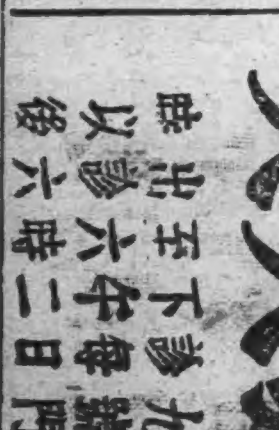 九號門
診每日
下午二
至六時
出診六
時以後